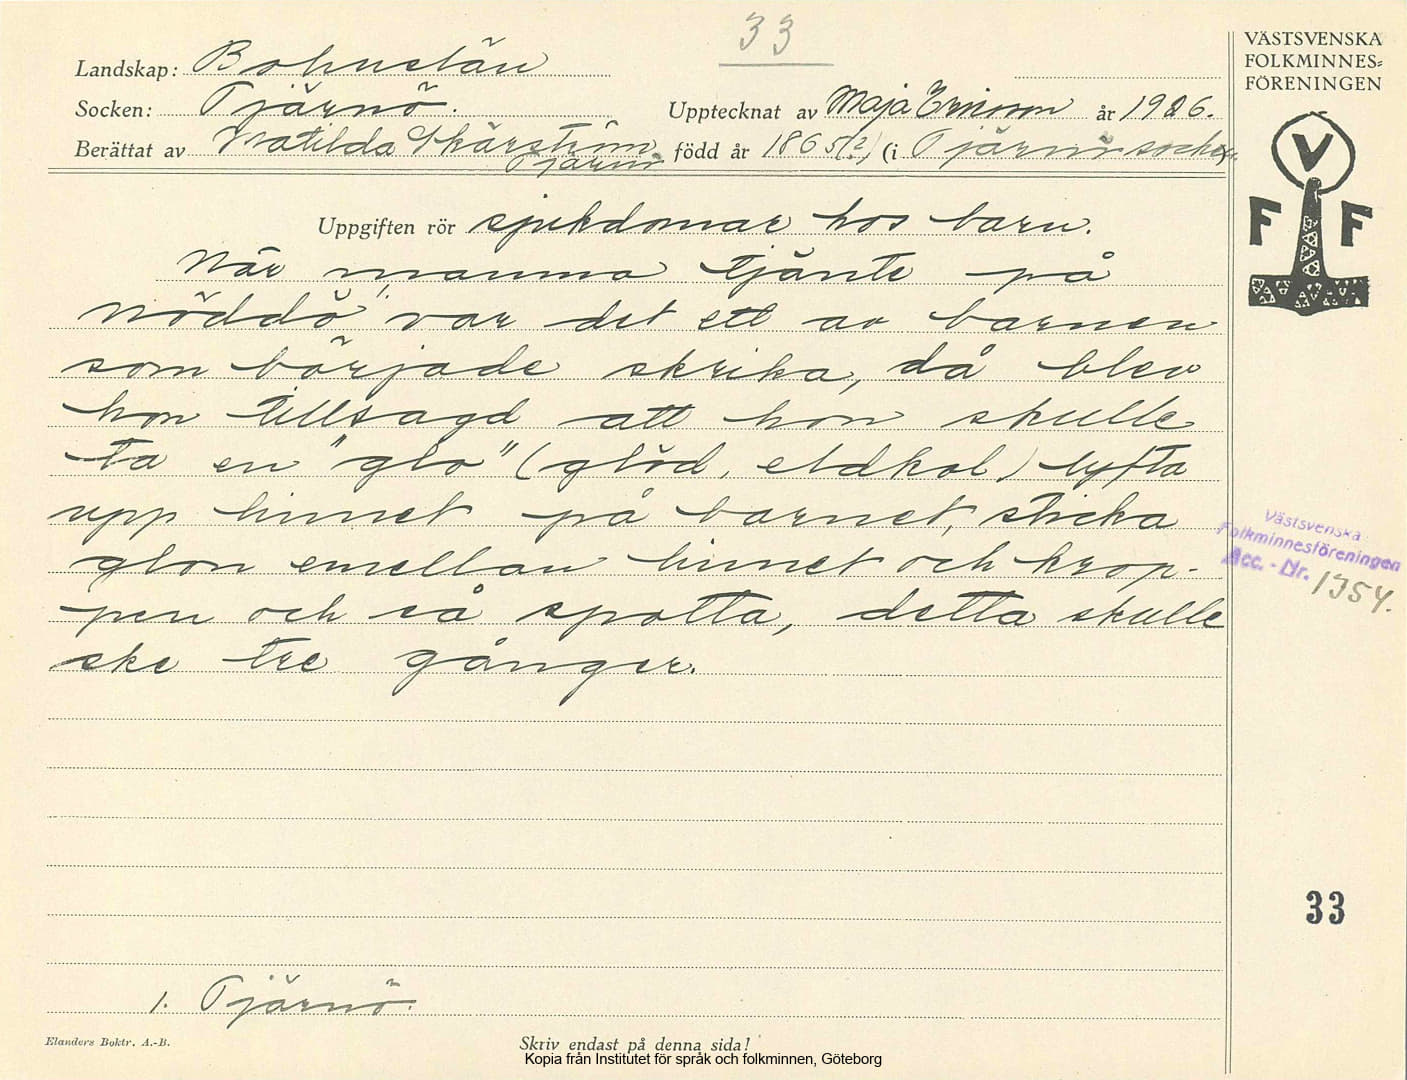 33
Landskap: Bohuslän
Socken: Tjärnö.
Upptecknat av Maja Ericson år 1926.
Berättat av Matilda Skärström, Tjärnö född år 1865(?) (i Tjärnö socken
Uppgiften rör sjukdomar hos barn.
När mamma tjänte på
Nöddö, var det ett av barnen
som började skrika, då blev
hon tillsagd att hon skulle
ta en "glo" (glöd, eldkol) lyfta
upp linnet på barnet, sticka
glon emellan linnet och krop-
pen och så spotta, detta skulle
ske tre gånger.
1. Tjärnö.
Elanders Boktr. A.-B.
Skriv endast på denna sida!
Kopia från Institutet för språk och folkminnen, Göteborg
VÄSTSVENSKA
FOLKMINNES=
FÖRENINGEN
V
F F
Västsvenska
Folkminnesföreningen
Acc. - Nr. 1354.
33